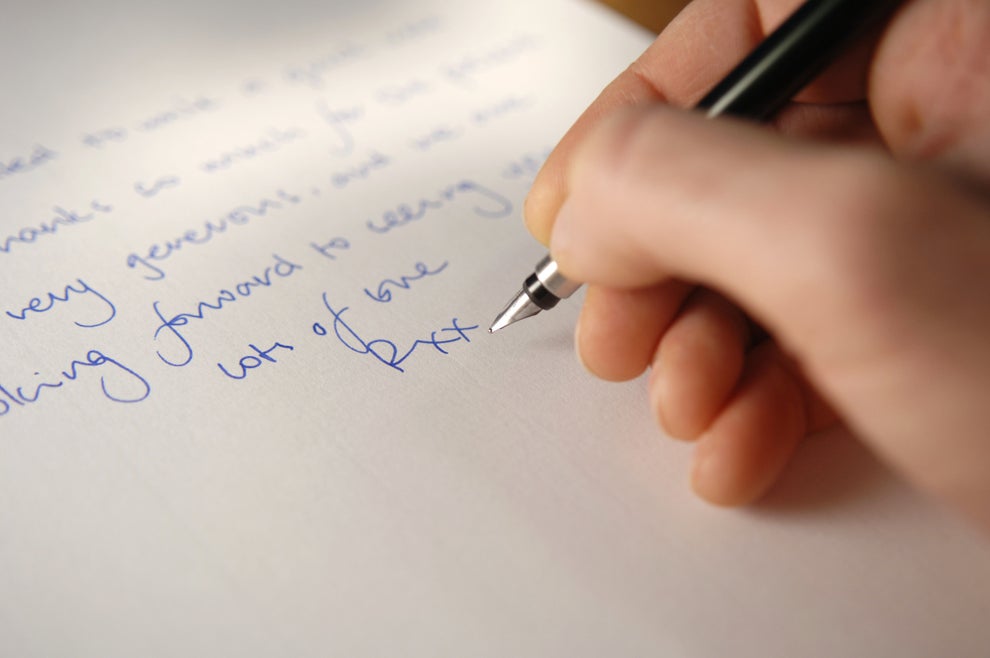 to write a quick
thanks so much for the
very generous, and we are
looking forward to seeing
lots of love
R xxx